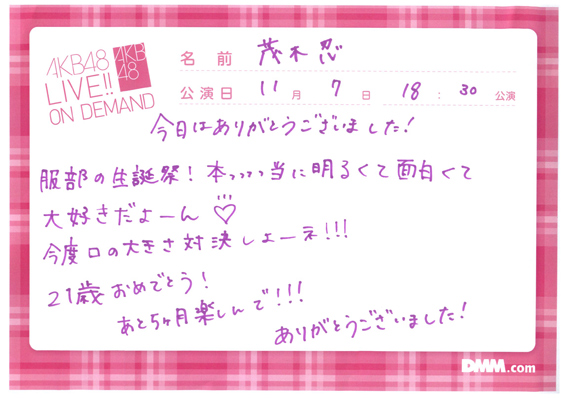 AKB48
LIVE!!
ON DEMAND
AKB
48
名 前 茂木忍
公演日 11 月 7 日 18 : 30 公演
今日はありがとうございました!
服部の生誕祭!本っっっっ当に明るくて面白くて
大好きだよーん♡
今度口の大きさ対決しよーネ!!!
21歳おめでとう!
あと5ヶ月楽しんで!!!
ありがとうございました!
DMM.com